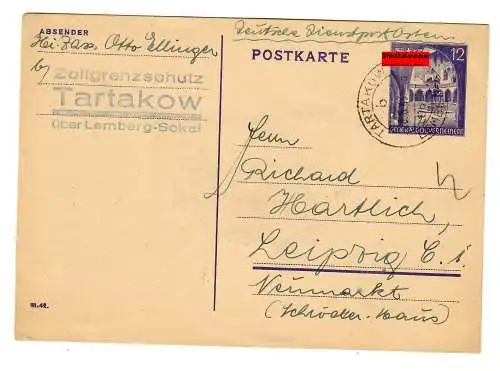 ABSENDER
Deutsche Dienstpost Osten
Hi. Zass. Otto Ellinger
b/
Zollgrenzschutz
Tartakow
über Lemberg-Sokal
POSTKARTE
12
PHILAPOSE
TARTAKOW
GENERALGOUVERNEMENT
Herrn
Richard
Hartlich,
Leipzig C. 1.
Neumarkt
(Schröder-Haus)
III.42.